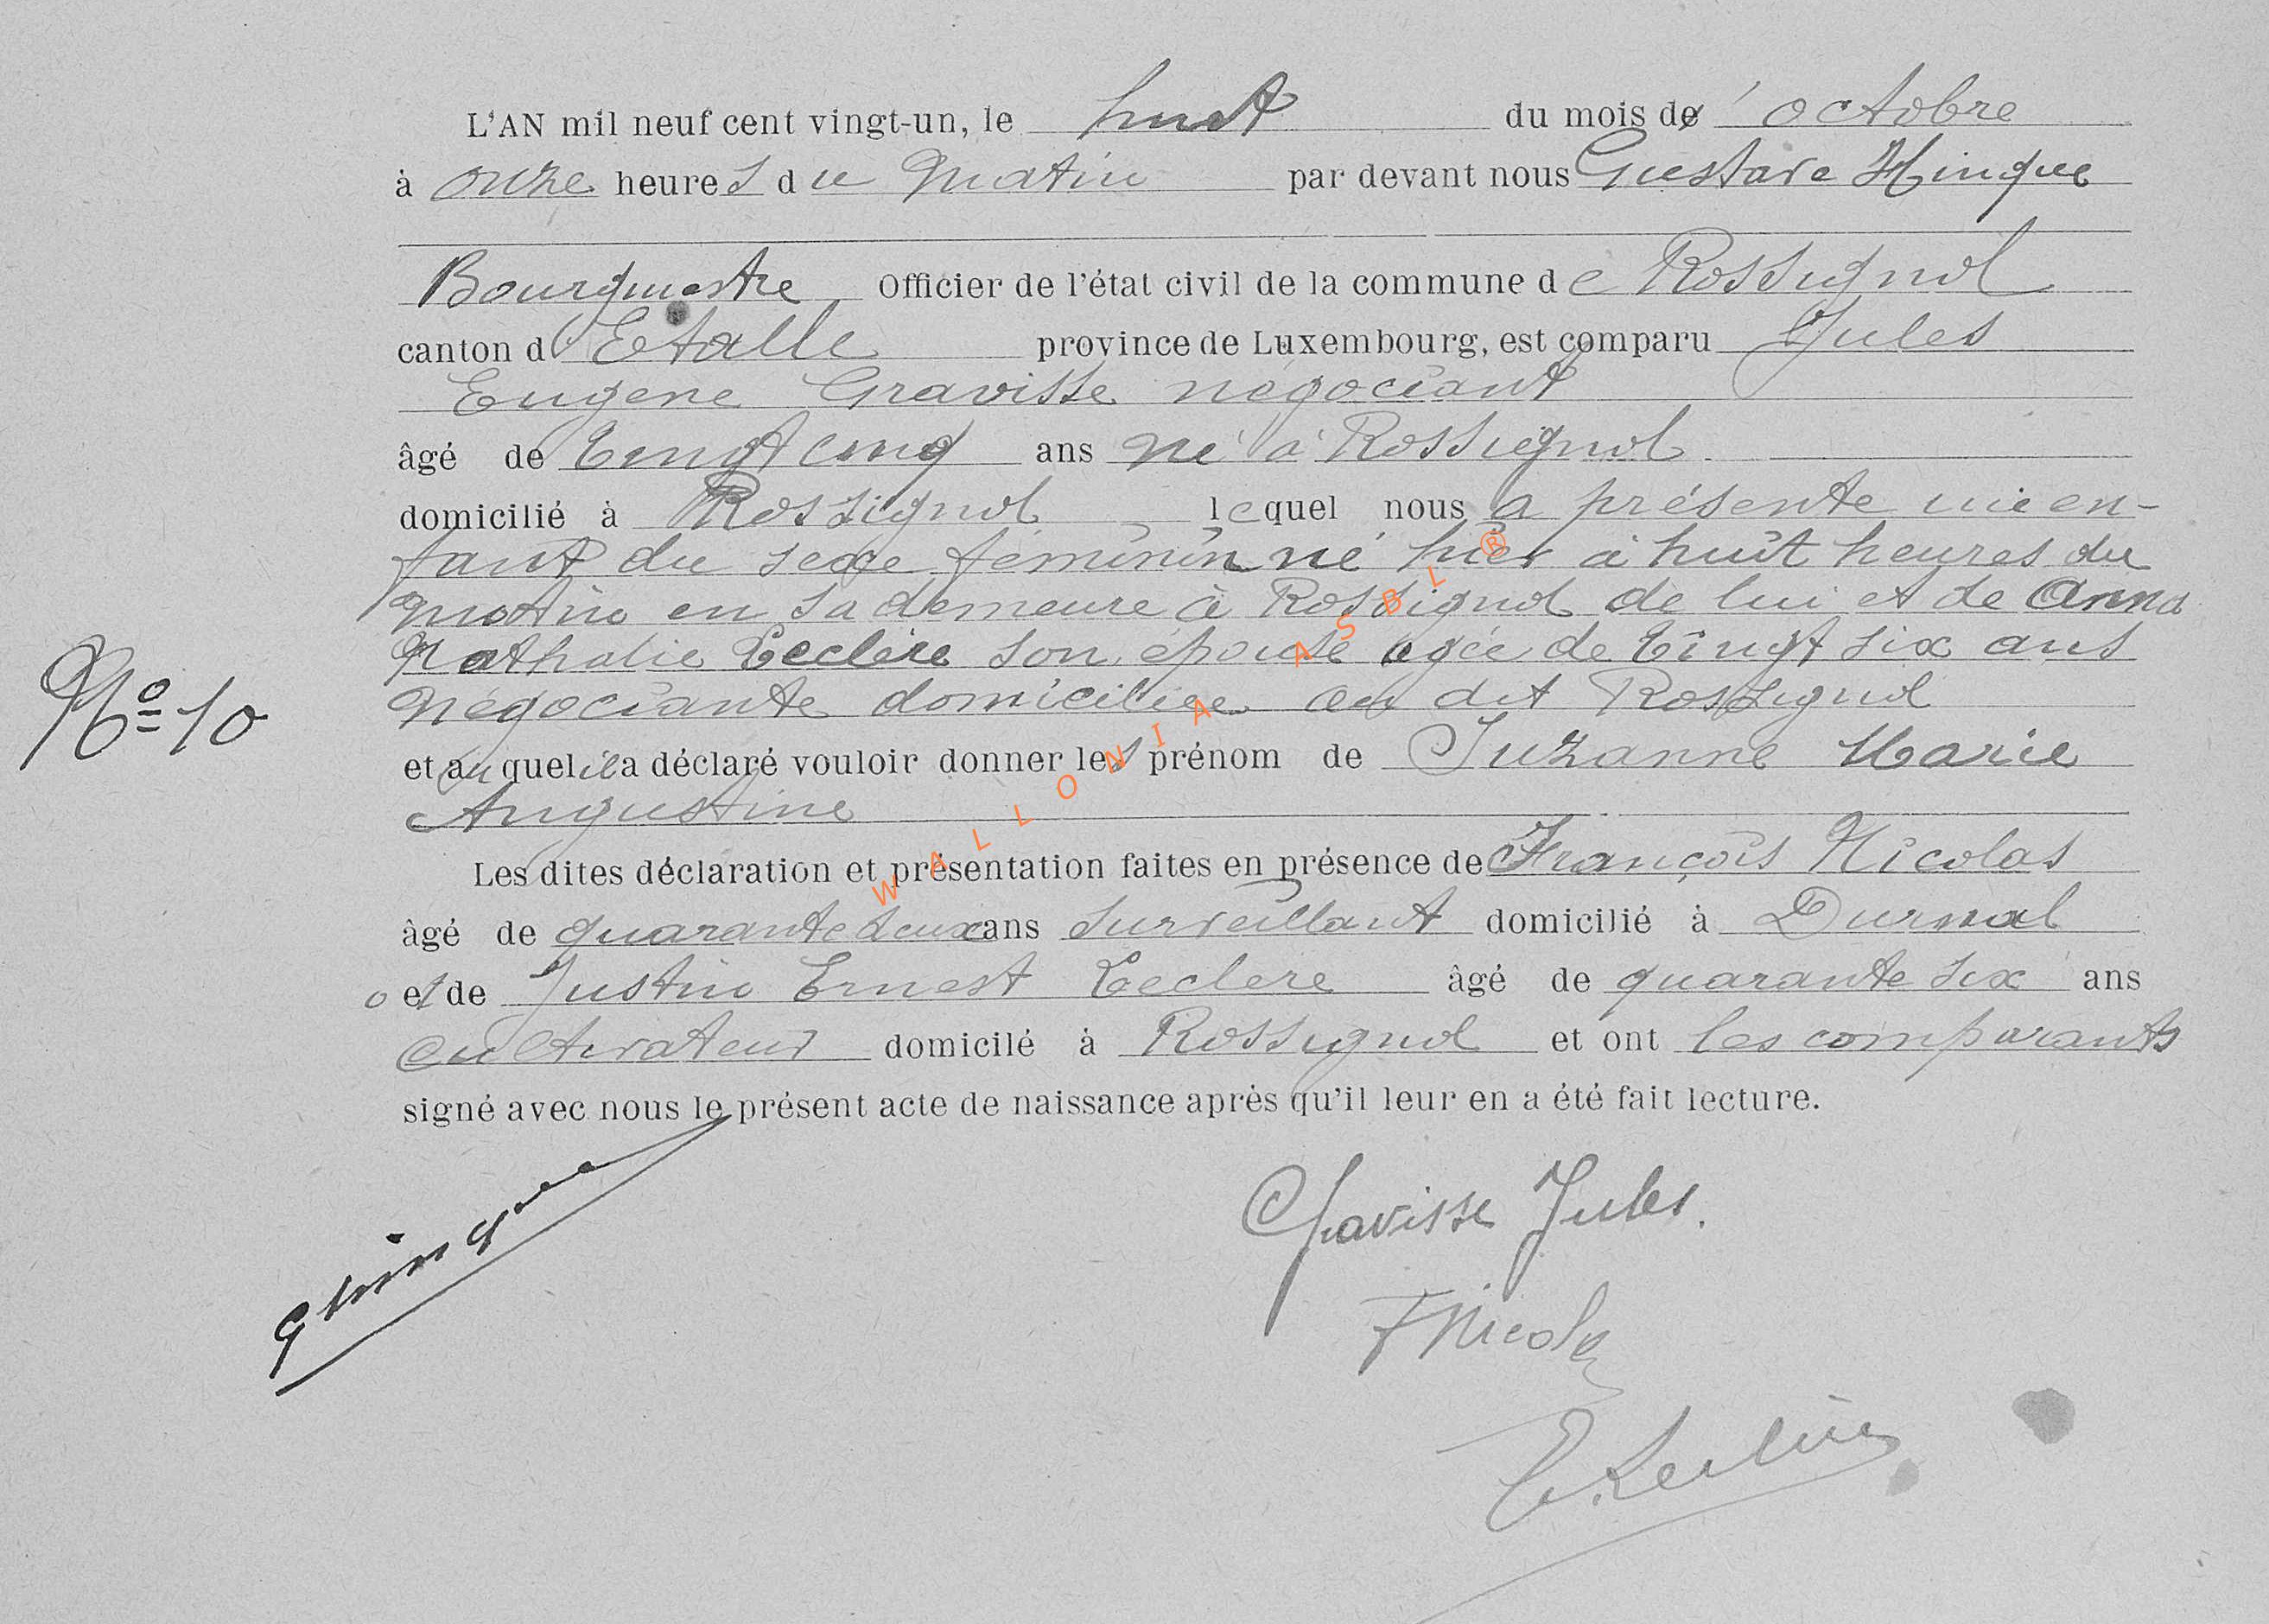 L'AN mil neuf cent vingt-un, le huit du mois d' octobre
à onze heures du matin par devant nous Gustave Hinque
Bourgmestre Officier de l'état civil de la commune de Rossignol
canton d'Etalle province de Luxembourg, est comparu Jules
Eugene Gravisse négociant
âgé de Vingt cinq ans né à Rossignol
domicilié à Rossignol lequel nous a présente une en-
fant du sexe féminin né hier à huit heures du
matin en sa demeure à Rossignol de lui et de Anna
Nathalie Leclère son épouse agée de Vingt six ans
négociante domiciliée au dit Rossignol
N° 10
et auquel il a déclaré vouloir donner les prénom de Suzanne Marie
Augustine
Les dites déclaration et présentation faites en présence de François Nicolas
âgé de quarante deux ans surveillant domicilié à Durnal
et de Justin Ernest Leclere âgé de quarante six ans
cultivateur domicilé à Rossignol et ont les comparants
signé avec nous le présent acte de naissance après qu'il leur en a été fait lecture.
GHinque
Gravisse Jules.
F Nicolas
E. Leclère
WALLONIA ASBL ®